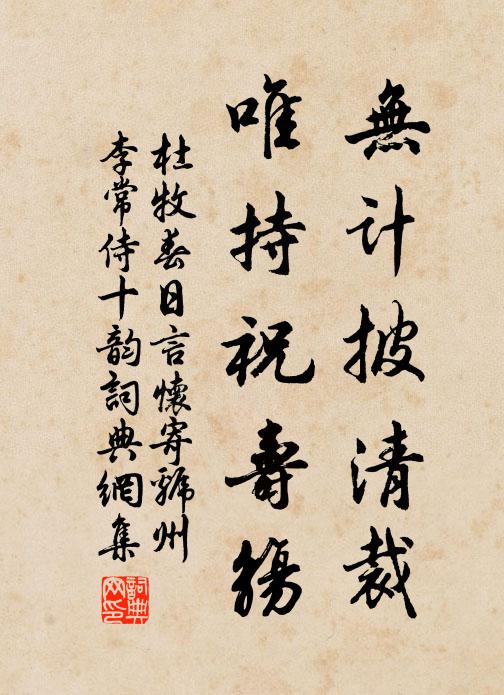 無计披清裁
唯持祝壽觴
杜牧春日言懷寄虢州
李常侍十韵詞典網集
詞典
网印